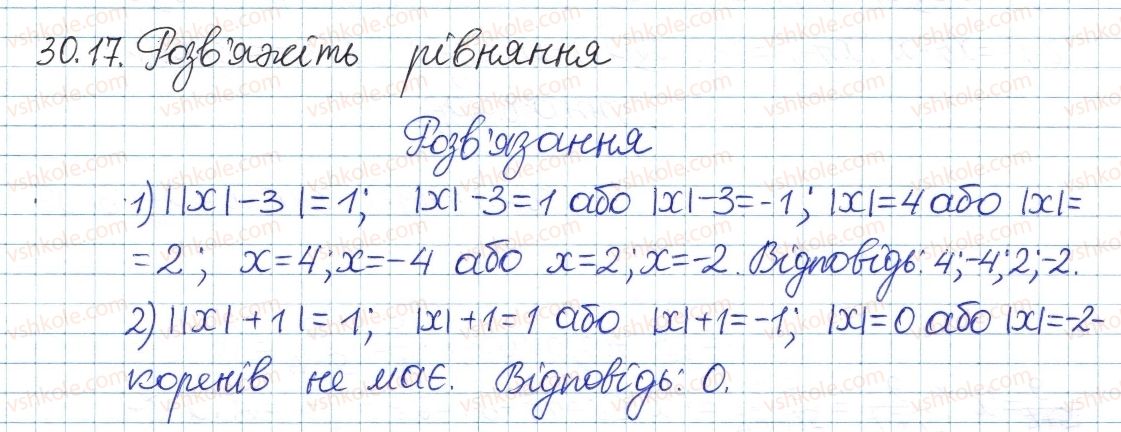 30.17. Розв'яжіть рівняння
Розв'язання
1) ||x|-3|=1; |x|-3=1 або |x|-3=-1; |x|=4 або |x|=
=2; x=4; x=-4 або x=2; x=-2. Відповідь: 4;-4;2;-2.
2) ||x|+1|=1; |x|+1=1 або |x|+1=-1; |x|=0 або |x|=-2-
коренів не має. Відповідь: 0.